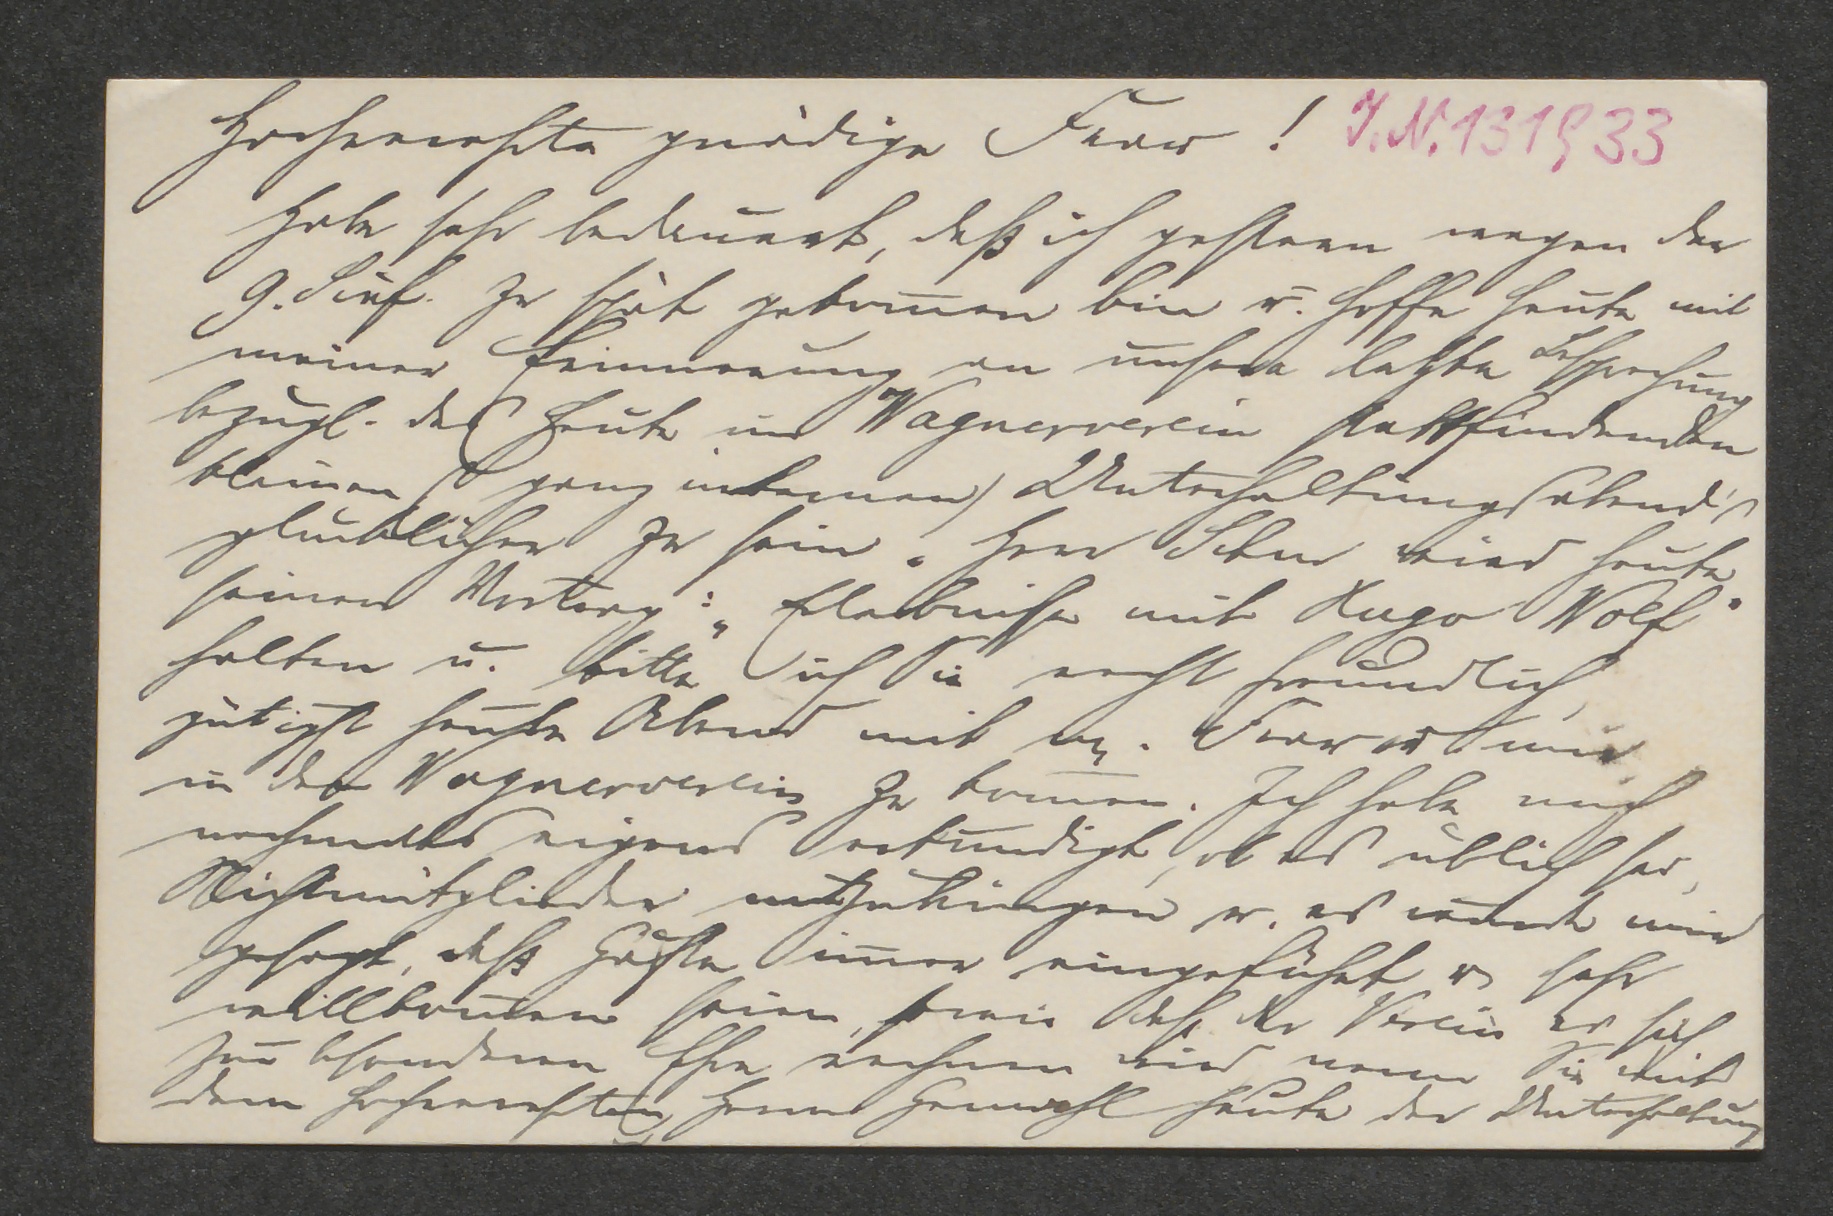 Hochverehrte gnädige Frau! I.N. 131933
Habe sehr bedauert, daß ich gestern wegen der
9. Sinf. zu spät gekom̅en bin u. hoffe heute mit
meiner Erinnerung an unsere letzte Besprechung
bezügl. des heute im Wagnerverein stattfindenden
kleinen (ganz internen) Unterhaltungsabend's
glücklicher zu sein. Herr wird heute
seinen Vortrag: „Erlebnisse mit Hugo Wolf"
halten u. bitte ich Sie recht freundlich,
gütigst heute Abend mit m. Frau u mir
in den Wagnerverein zu kom̅en. Ich habe mich
nochmals eigens erkundigt, ob es üblich sei,
Nichtmitglieder mitzubringen u. es wurde mir
gesagt, daß Gäste im̅er eingeführt u sehr
willkom̅en seien, sowie daß der Verein es sich
zur besonderen Ehre rechnen wird wenn Sie mit
dem hochverehrten Herrn Gemahl heute der Unterhaltung